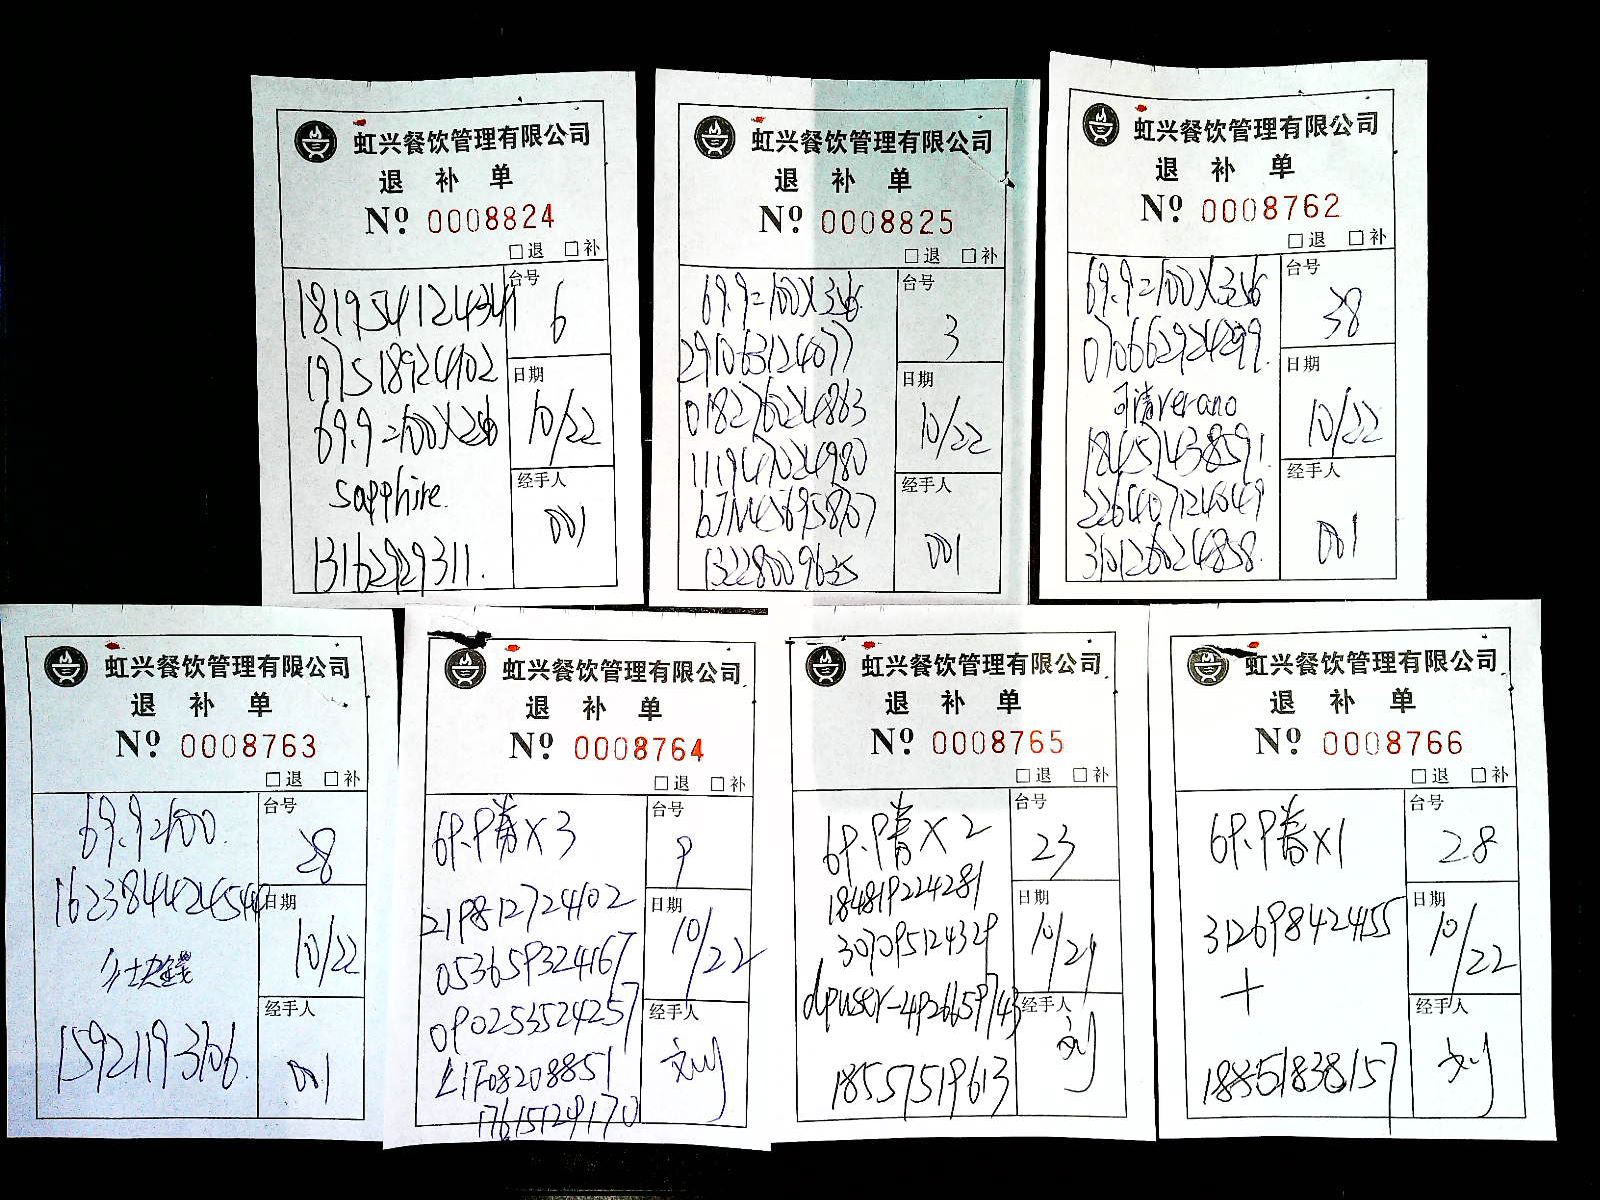 虹兴餐饮管理有限公司
退 补 单
Nº 0008824
□退 □补
181954124341
197518924902
69.9=100X2张
sapphire.
13162929311.
台号
6
日期
10/22
经手人
001
虹兴餐饮管理有限公司
退 补 单
Nº 0008825
□退 □补
69.9=100X3张
291063124077
018276224863
111947024980
13228009635
台号
3
日期
10/22
经手人
001
虹兴餐饮管理有限公司
退 补 单
Nº 0008762
□退 □补
69.9=100X3张
070662924299.
verano
18451438591.
226407124049
310126024858.
台号
38
日期
10/22
经手人
001
虹兴餐饮管理有限公司
退 补 单
Nº 0008763
□退 □补
69.9=100.
15921193706.
台号
28
日期
10/22
经手人
001
虹兴餐饮管理有限公司
退 补 单
Nº 0008764
□退 □补
69.9券X3
219812724402
053659324167
090253524257
17615129170
台号
9
日期
10/22
经手人
刘
虹兴餐饮管理有限公司
退 补 单
Nº 0008765
□退 □补
69.9券X2
184819224281
307095124329
dpuser-4926659743
18557519613
台号
23
日期
10/21
经手人
刘
虹兴餐饮管理有限公司
退 补 单
Nº 0008766
□退 □补
69.9券X1
312698424155
+
18351838157
台号
28
日期
10/22
经手人
刘